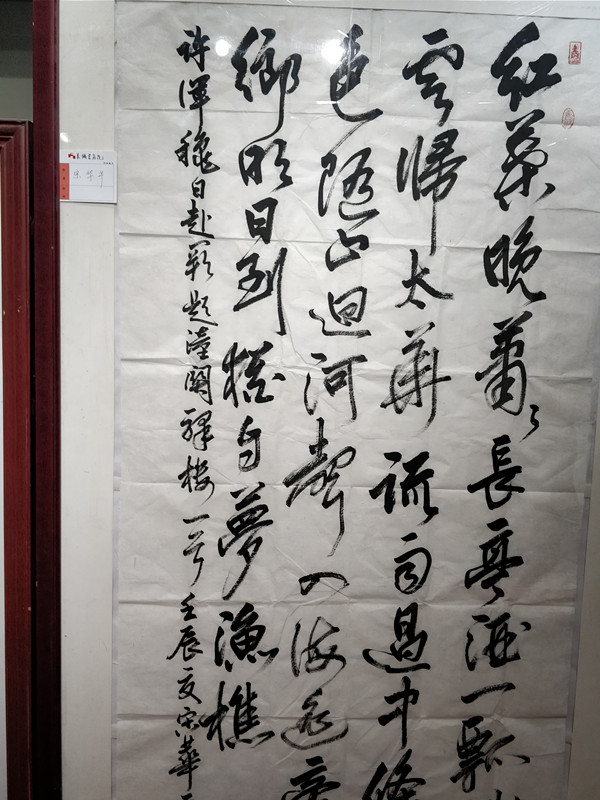 紅葉晚蕭〻長亭酒一瓢
雲歸太華疏雨過中條
色隨山迴河聲入海遥帝
鄉明日到猶自夢漁樵
許渾穐日赴闕題潼關驛樓一首壬辰夏宋華